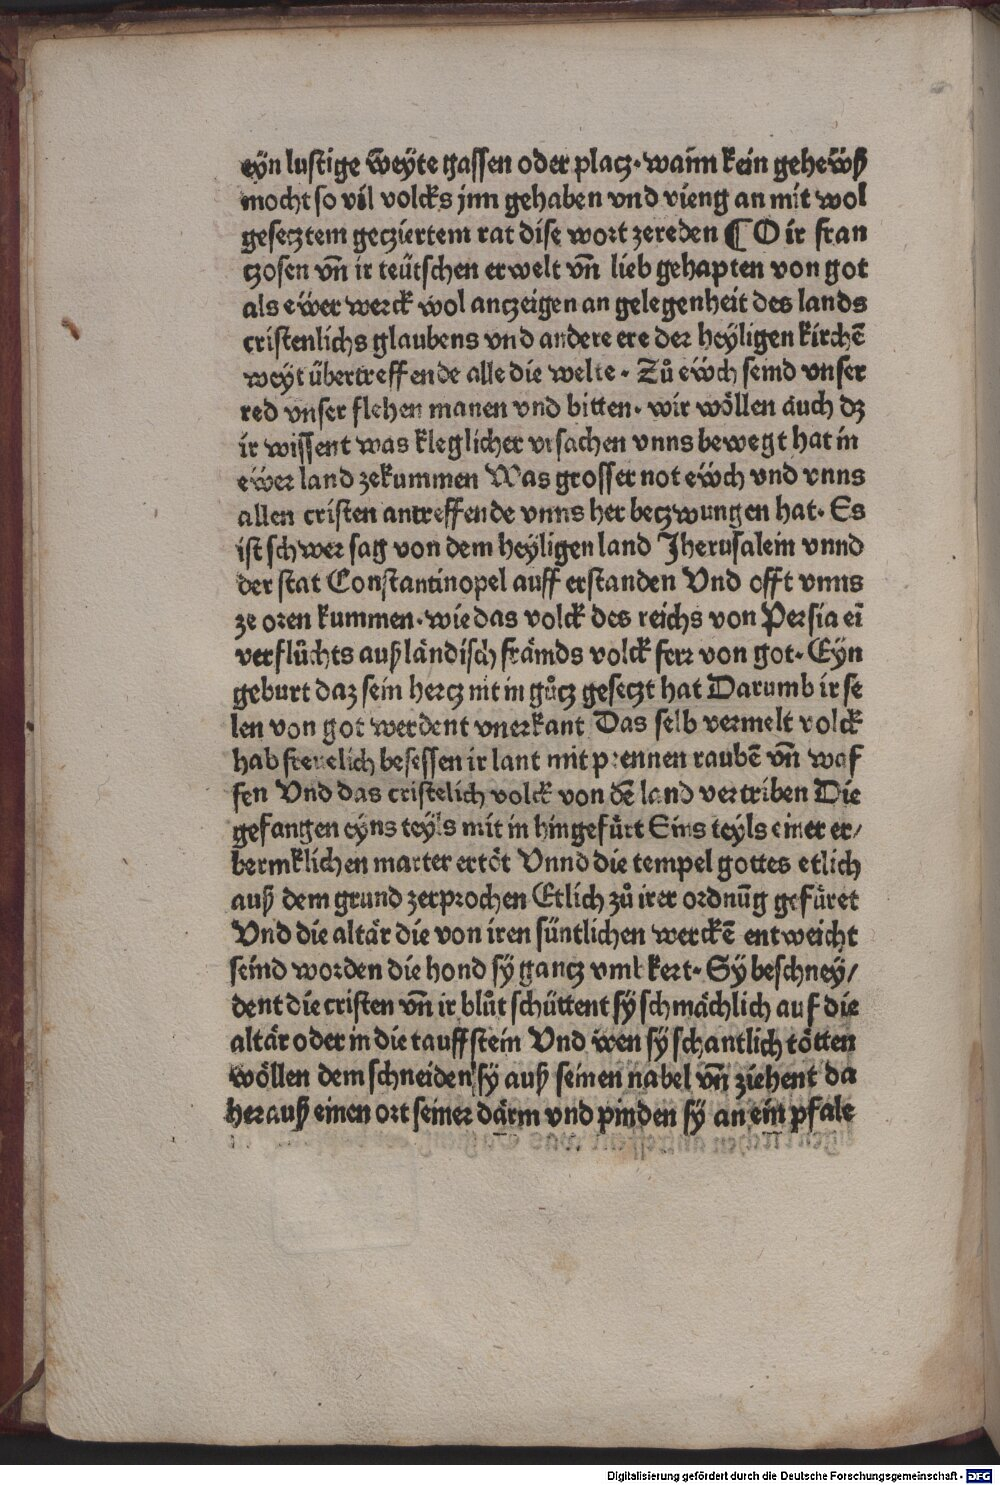 eyn lustige weyte gassen oder placz· wann kein gehewß
mocht so vil volcks jnn gehaben vnd vieng an mit wol
gesecztem gecziertem rat dise wort zereden ¶ O ir fran
czosen vñ ir teütschen erwelt vñ lieb gehapten von got
als ewer werck wol anczeigen an gelegenheit des lands
cristenlichs glaubens vnd andere ere der heyligen kirchē
weyt übertreffende alle die welte· Zů ewch seind vnser
red vnser flehen manen vnd bitten· wir wöllen auch dz
ir wissent was kleglicher vrsachen vnns bewegt hat in
ewer land zekummen Was grosser not ewch vnd vnns
allen cristen antreffende vnns her beczwungen hat· Es
ist schwer sag von dem heyligen land Jherusalem vnnd
der stat Constantinopel auff erstanden Vnd offt vnns
ze oren kummen· wie das volck des reichs von Persia eī
verflůchts außländisch främds volck ferr von got· Eyn
geburt daz sein hercz nit in gůcz geseczt hat Darumb ir se
len von got werdent vnerkant Das selb vermelt volck
hab freuelich besessen ir lant mit prennen raubē vñ waf
fen Vnd das cristelich volck von dē land vertriben Die
gefangen eyns teyls mit in hingefürt Eins teyls einer er/
bermklichen marter ertöt Vnnd die tempel gottes etlich
auß dem grund zerprochen Etlich zů irer ordnūg gefüret
Vnd die altär die von iren süntlichen werckē entweicht
seind worden die hond sy gancz vmb kert· Sy beschney/
dent die cristen vñ ir blůt schüttent sy schmächlich auf die
altär oder in die tauffstein Vnd wen sy schantlich tötten
wöllen dem schneiden sy auß seinen nabel vñ ziehent da
herauß einen ort seiner därm vnd pinden sy an ein pfale
Digitalisierung gefördert durch die Deutsche Forschungsgemeinschaft - DFG